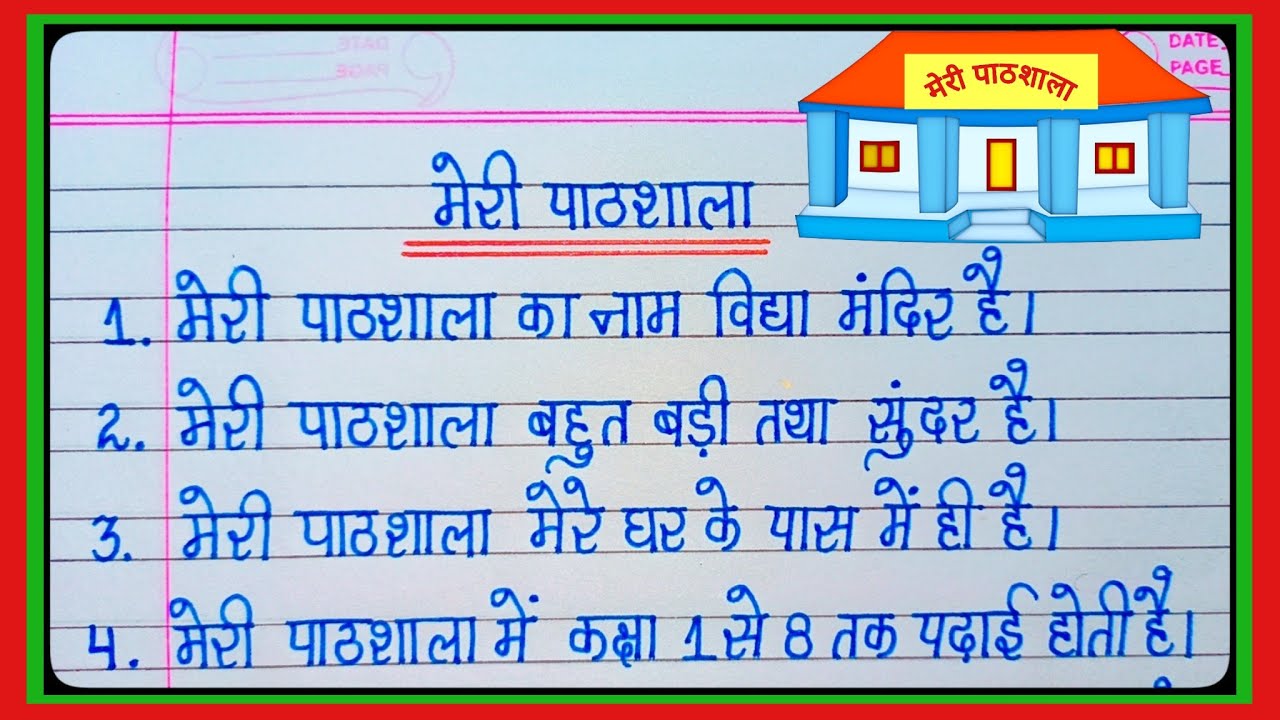 DATE
PAGE
DATE
PAGE
मेरी पाठशाला
मेरी पाठशाला
1. मेरी पाठशाला का नाम विद्या मंदिर है।
2. मेरी पाठशाला बहुत बड़ी तथा सुंदर है।
3. मेरी पाठशाला मेरे घर के पास में ही है।
4. मेरी पाठशाला में कक्षा 1 से 8 तक पढ़ाई होती है।